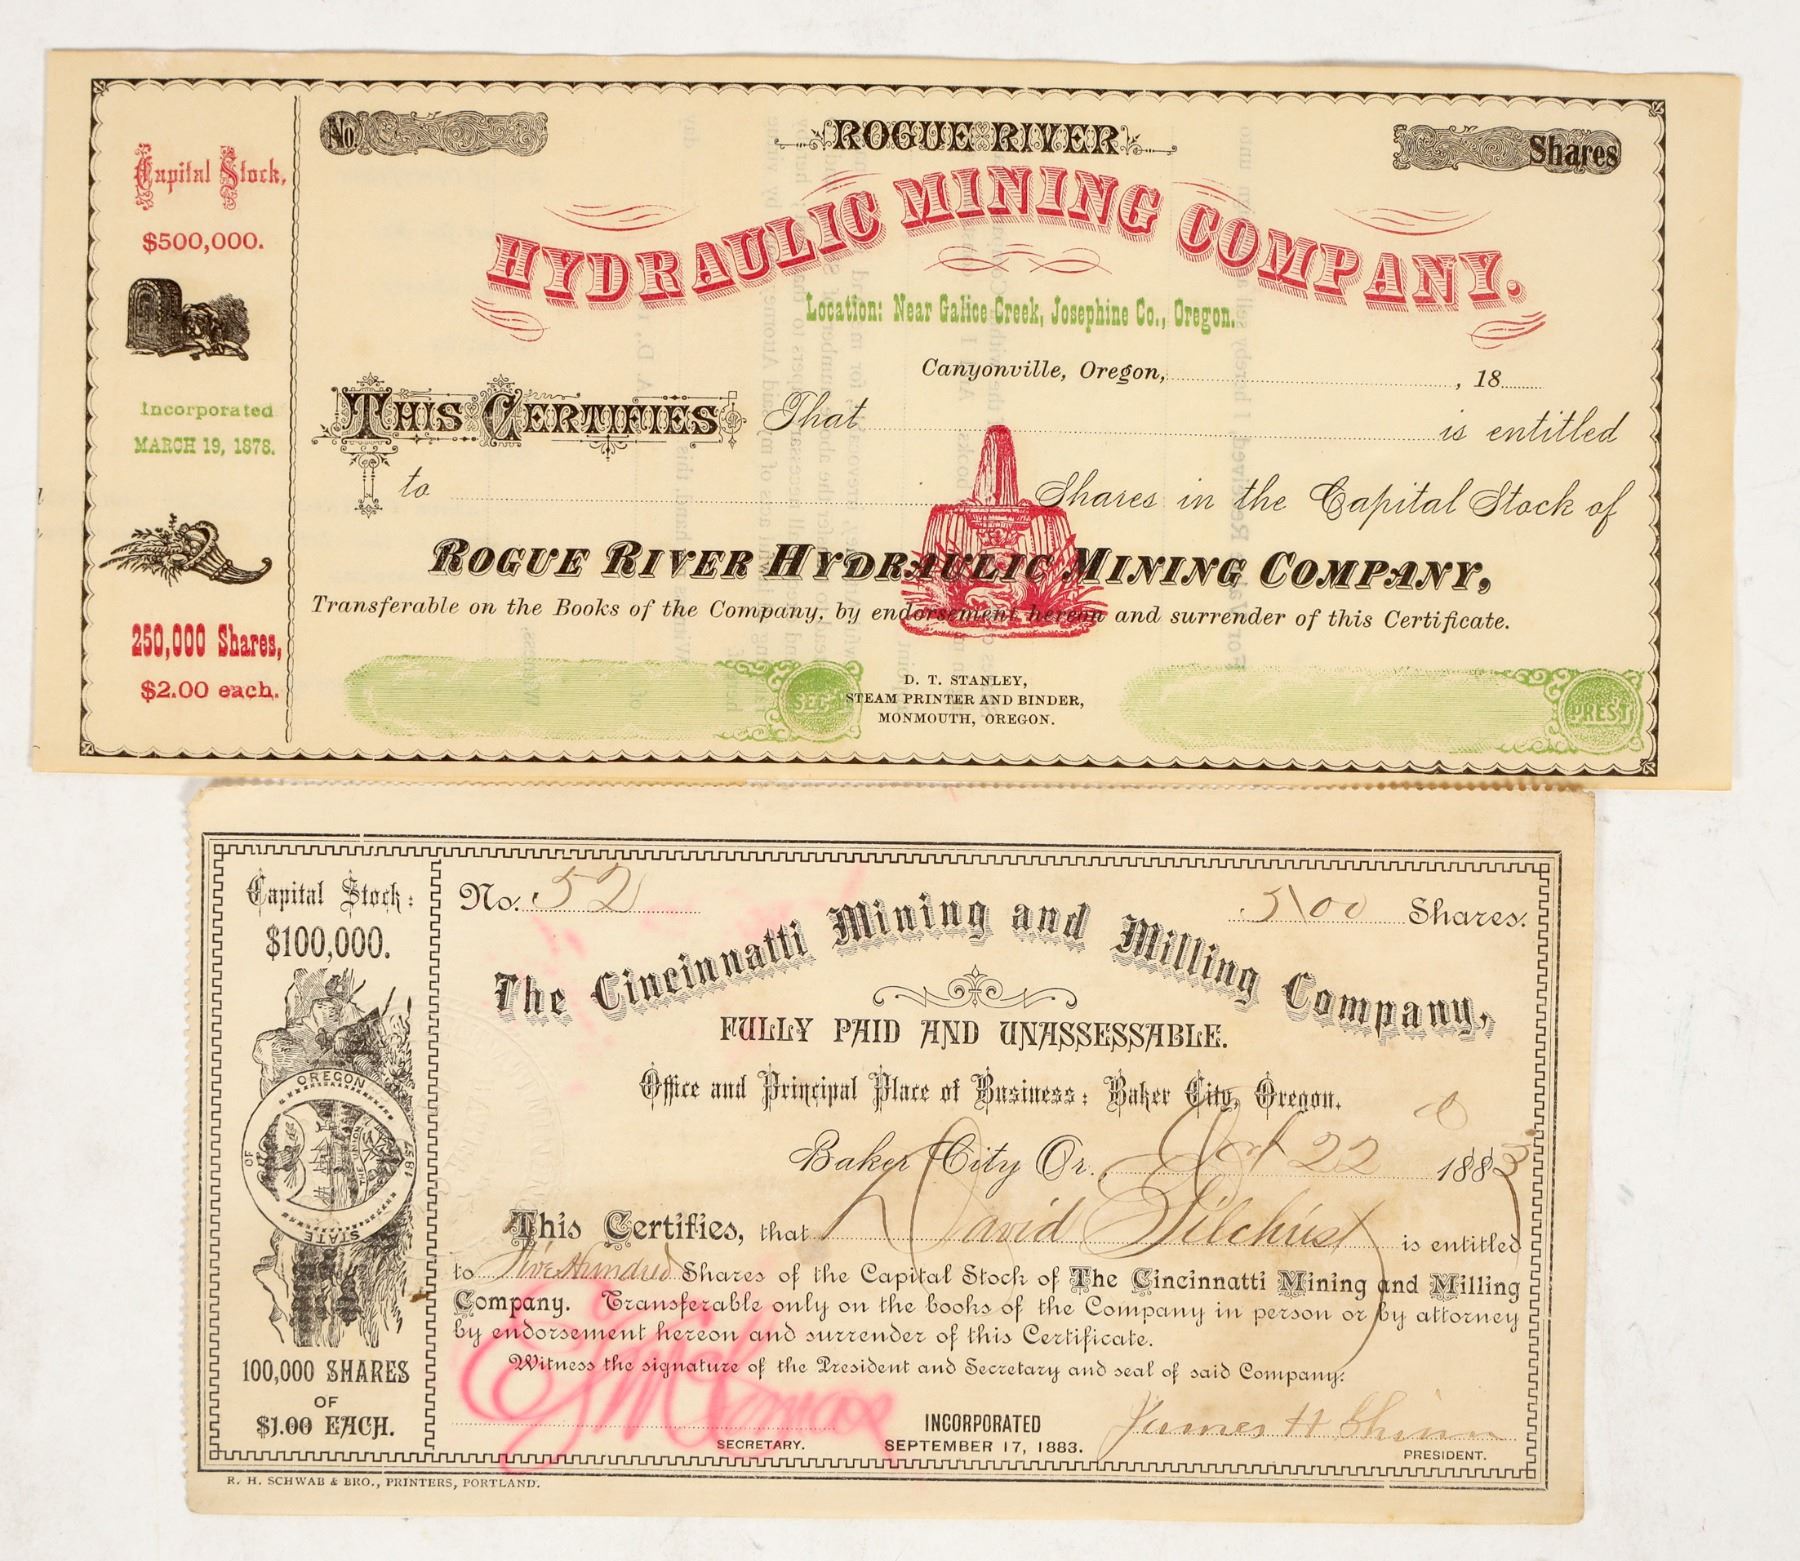 No.
ROGUE RIVER
Shares
HYDRAULIC MINING COMPANY.
Location: Near Galice Creek, Josephine Co., Oregon.
Capital Stock,
$500,000.
Incorporated
MARCH 19, 1878.
250,000 Shares,
$2.00 each.
Canyonville, Oregon, , 18
THIS CERTIFIES That is entitled
to Shares in the Capital Stock of
ROGUE RIVER HYDRAULIC MINING COMPANY,
Transferable on the Books of the Company, by endorsement hereon and surrender of this Certificate.
SEC.
D. T. STANLEY,
STEAM PRINTER AND BINDER,
MONMOUTH, OREGON.
PREST
Capital Stock:
$100,000.
STATE OF OREGON
THE UNION
1857
100,000 SHARES
OF
$1.00 EACH.
No. 52
500 Shares.
The Cincinnatti Mining and Milling Company,
FULLY PAID AND UNASSESSABLE.
Office and Principal Place of Business: Baker City, Oregon.
Baker City Or. Oct 22 1883
This Certifies, that David Gilchrist is entitled
to Five Hundred Shares of the Capital Stock of The Cincinnatti Mining and Milling
Company. Transferable only on the books of the Company in person or by attorney
by endorsement hereon and surrender of this Certificate.
Witness the signature of the President and Secretary and seal of said Company.
James H. Shinn
SECRETARY.
INCORPORATED
SEPTEMBER 17, 1883.
PRESIDENT.
R. H. SCHWAB & BRO., PRINTERS, PORTLAND.